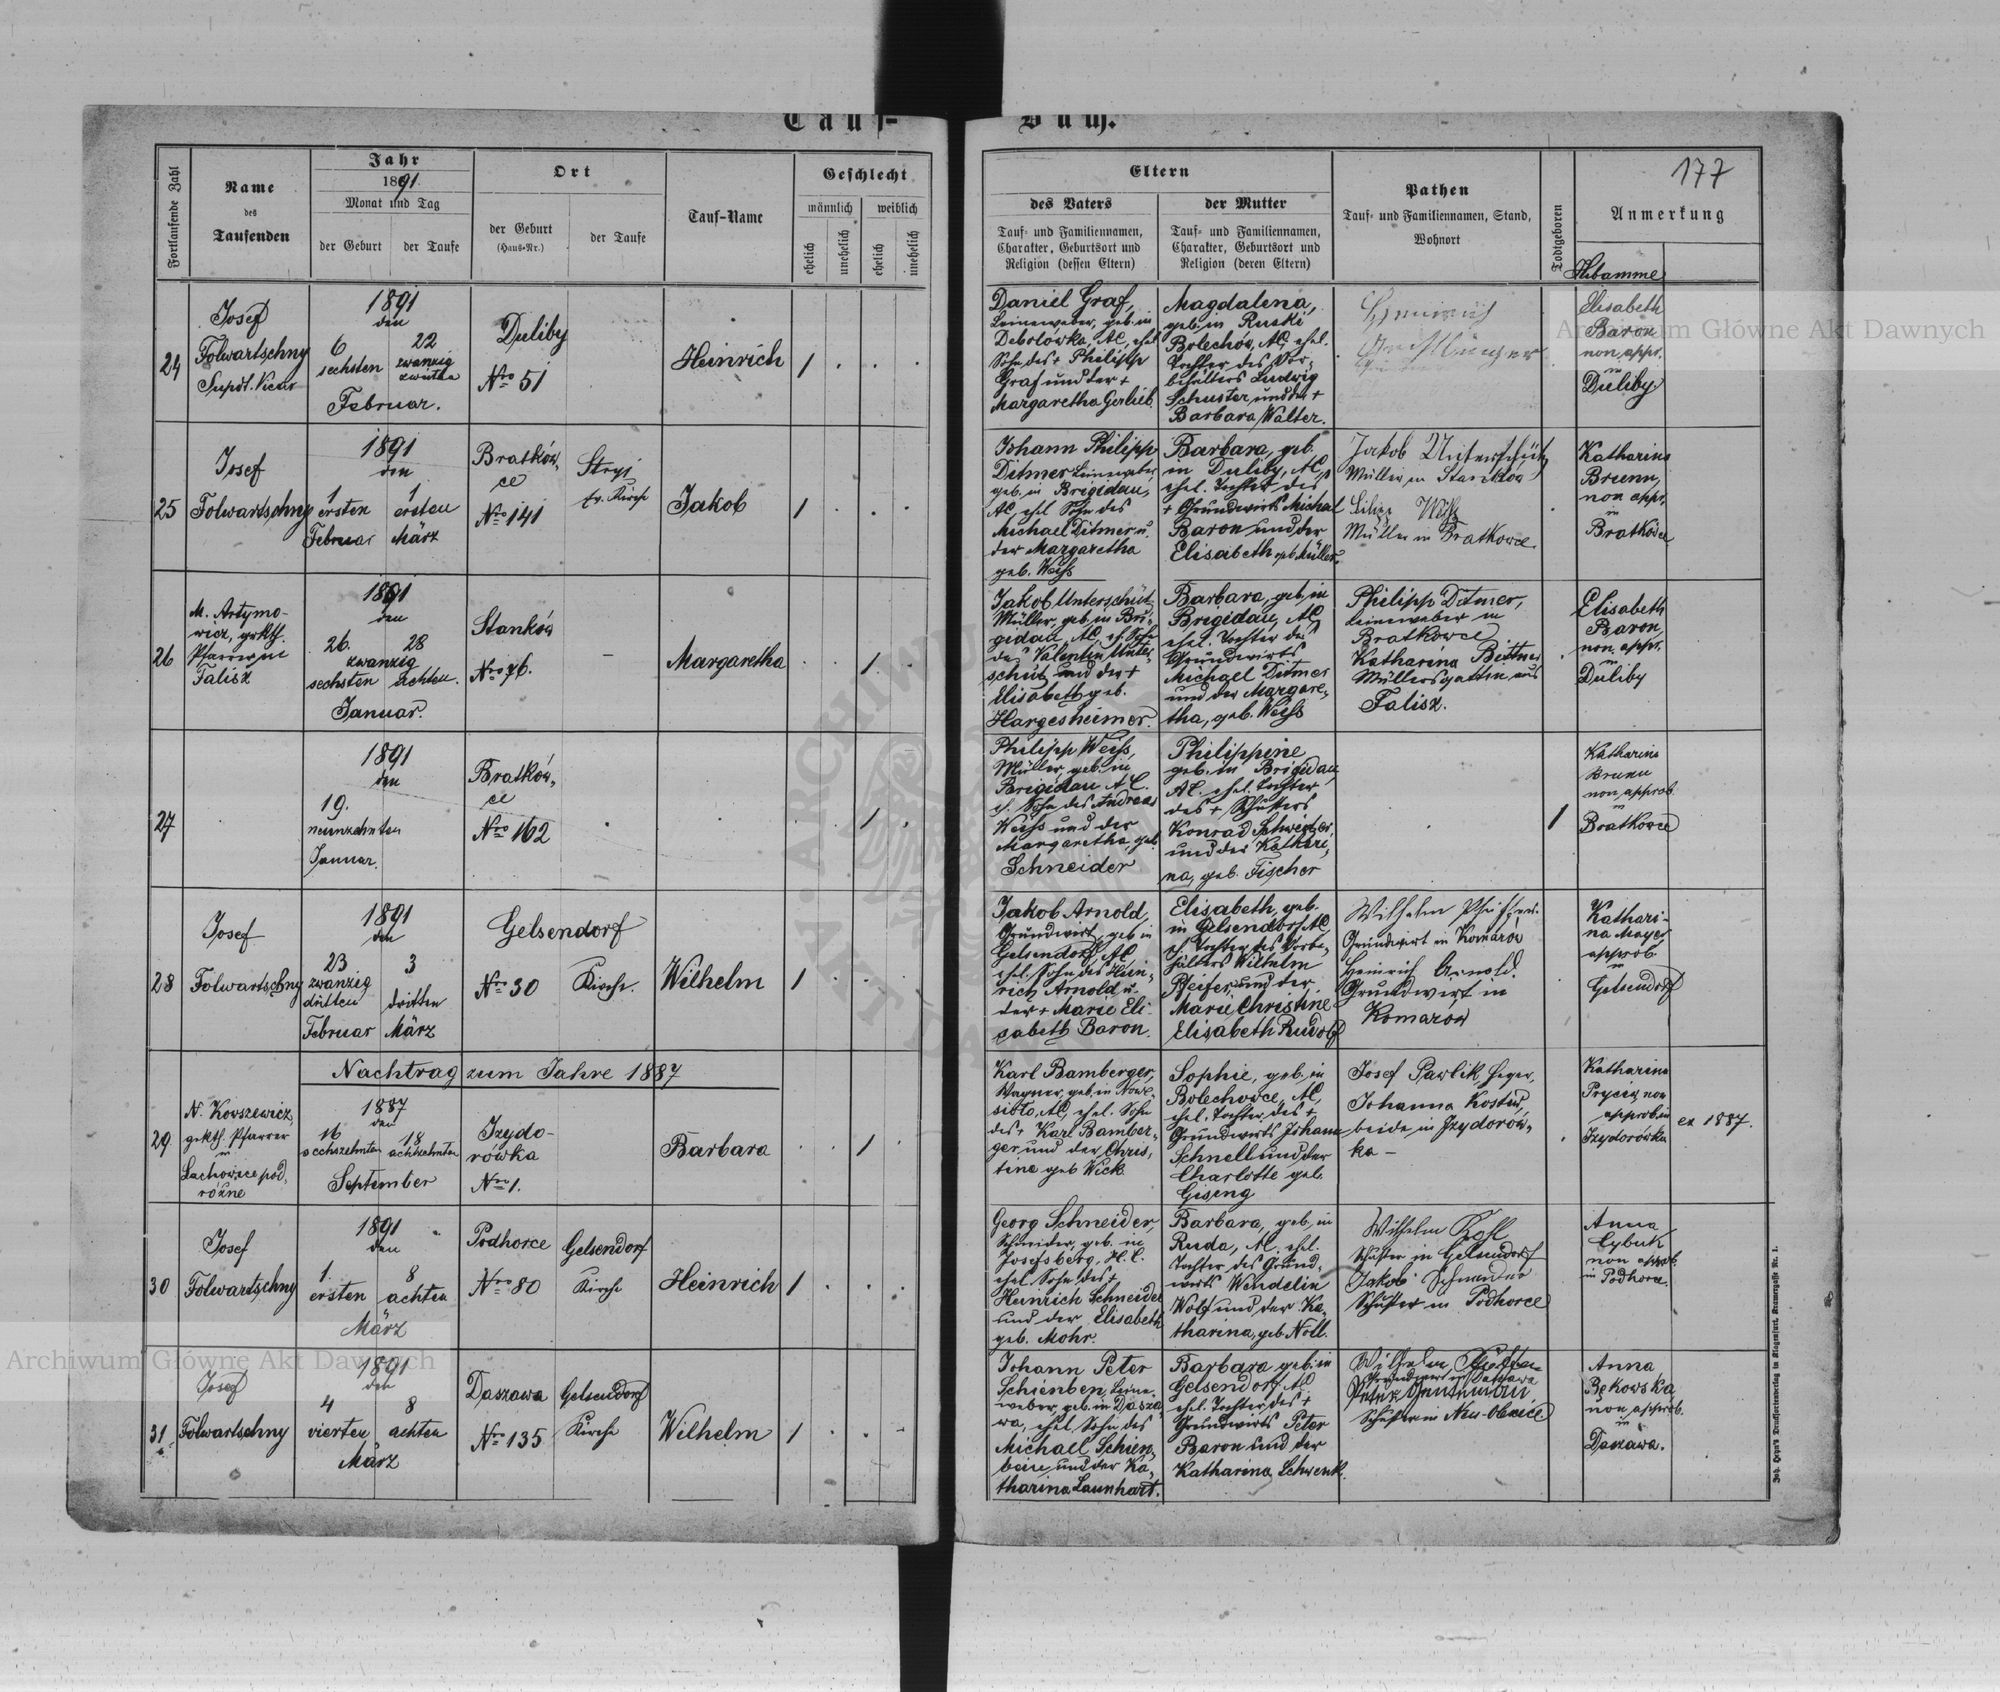 Tauf-
Buch.
177
Fortlaufende Zahl
Name
des
Taufenden
Jahr
1891.
Monat und Tag
der Geburt
der Taufe
Ort
der Geburt
(Haus-Nr.)
der Taufe
Tauf-Name
Geschlecht
männlich
weiblich
ehelich
unehelich
ehelich
unehelich
Eltern
des Vaters
Tauf- und Familiennamen,
Charakter, Geburtsort und
Religion (dessen Eltern)
der Mutter
Tauf- und Familiennamen,
Charakter, Geburtsort und
Religion (deren Eltern)
Pathen
Tauf- und Familiennamen, Stand,
Wohnort
Todtgeboren
Anmerkung
Hebamme
24
Josef
Folwartschny
Supdt. Vicar
1891
den
6
sechsten
22
zwanzig
zweiten
Februar.
Duliby
Nro 51
Heinrich
1
Daniel Graf,
Leineweber, geb. in
Debolówka, AC, ehel
Sohn des + Philipp
Graf und der +
Margaretha Gerlieb.
Magdalena,
geb. in Ruski
Bolechów, AC, ehel.
Tochter des Vor-
behälters Ludwig
Schuster und der +
Barbara Walter.
Heinrich
Elisabeth
Baron
non appr.
in
Duliby
25
Josef
Folwartschny
1891
den
1
ersten
Februar
1
ersten
März
Bratków-
ce
Nro 141
Stryj
ev. Kirche
Jakob
1
Johann Philipp
Ditmer Leineweber,
geb. in Brigidau,
AC, ehel Sohn des
Michael Ditmer u.
der Margaretha
geb. Weiss
Barbara, geb.
in Duliby, AC,
ehel. Tochter des
+ Grundwirts Michal
Baron und der
Elisabeth geb. Müller.
Jakob Unterschütz
Müller in Stanków
Müller in Bratkowce.
Katharina
Brunn,
non appr.
in
Bratkówce
26
M. Artymo-
wicz, grkth.
Pfarrer in
Falisz
1891
den
26.
28
zwanzig
sechsten achten.
Januar.
Stanków
Nro 76.
Margaretha
1
Jakob Unterschütz
Müller, geb. in Bri-
gidau, AC, eh. Sohn
des Valentin Unter-
schütz und der +
Elisabeth geb.
Hargesheimer.
Barbara, geb. in
Brigidau, AC,
ehel. Tochter des
Grundwirts
Michael Ditmer
und der Margare-
tha, geb. Weiss
Philipp Ditmer,
Leineweber in
Bratkowce
Katharina Bittner
Müllersgattin aus
Falisz.
Elisabeth
Baron,
non appr.
in
Duliby
27
1891
den
19.
neunzehnten
Januar.
Bratków-
ce
Nro 162
1
Philipp Weiss,
Müller, geb. in
Brigidau A.C.
eh. Sohn des Andreas
Weiss und der
Margaretha, geb.
Schneider
Philippine
geb. in Brigidau
AC. ehel. Tochter
des + Schusters
Konrad Schweitzer,
und der Kathari-
na, geb. Fischer
1
Katharina
Brunn
non approb.
in
Bratkowce
28
Josef
Folwartschny
1891
den
23
zwanzig
dritten
Februar
3
dritten
März
Gelsendorf
Nro 30
Kirche.
Wilhelm
1
Jakob Arnold,
Grundwirt, geb in
Gelsendorf, AC
ehel. Sohn des Hein-
rich Arnold u.
der + Marie Eli-
sabeth Baron.
Elisabeth, geb.
in Gelsendorf AC
eh. Tochter des Vorbe-
hälters Wilhelm
Pfeifer und der
Marie Christine
Elisabeth Rudolf
Wilhelm Pfeiffer.
Grundwirt in Komarów
Heinrich Arnold.
Grundwirt in
Komarow
Kathari-
na Mayer
approb
in
Gelsendorf
Nachtrag zum Jahre 1887
29
N. Kovszewicz,
grkth. Pfarrer
in
Lachowice pod-
rózne
1887
den
16
sechszehnten
18
achtzehnten
September
Izydo-
rówka
Nro 1.
Barbara
1
Karl Bamberger,
Wagner, geb. in Nowe-
sioło, AC, ehel. Sohn
des + Karl Bamber-
ger und der Chris-
tine geb Wick
Sophie, geb. in
Bolechowce, AC,
ehel. Tochter des +
Grundwirts Johann
Schnell und der
Charlotte geb.
Giseng
Josef Pawlik, Heger,
Johanna Kostur,
beide in Izydorów-
ka -
Katharina
Prycin, non
approb. in
Izydorówka
ex 1887.
30
Josef
Folwartschny
1891
den
1.
ersten
8
achten
März
Podhorce
Nro 80
Gelsendorf
Kirche
Heinrich
1
Georg Schneider,
Schneider, geb. in
Josefsberg, H.C.
ehel. Sohn des +
Heinrich Schneider
und der Elisabeth
geb. Mohr.
Barbara, geb. in
Ruda, AC. ehel.
Tochter des Grund-
wirts Wendelin
Wolf und der Ka-
tharina, geb. Noll.
Wilhelm Kohl
Schuster in Gelsendorf
Jakob Schneider
Schuster in Podhorce
Anna
Cybuk
non approb.
in Podhorce.
31.
Josef
Folwartschny
1891
den
4
vierten
8
achten
März
Daszawa
Nro 135
Gelsendorf
Kirche
Wilhelm
1
Johann Peter
Schienben, Leine-
weber, geb. in Dasza-
wa, ehel Sohn des
Michael Schien-
bein, und der Ka-
tharina Launhart.
Barbara geb. in
Gelsendorf, AC
ehel. Tochter des +
Grundwirts Peter
Baron und der
Katharina Schwenk.
Wilhelm
Grundwirt in Daszawa
Schuster in Neu-Olexice
Anna
Bękowska
non approb.
in
Daszawa.
Joh. Heyn's Drucksortenverlag in Klagenfurt, Kramergasse Nr. 1.
Archiwum Główne Akt Dawnych
Archiwum Główne Akt Dawnych